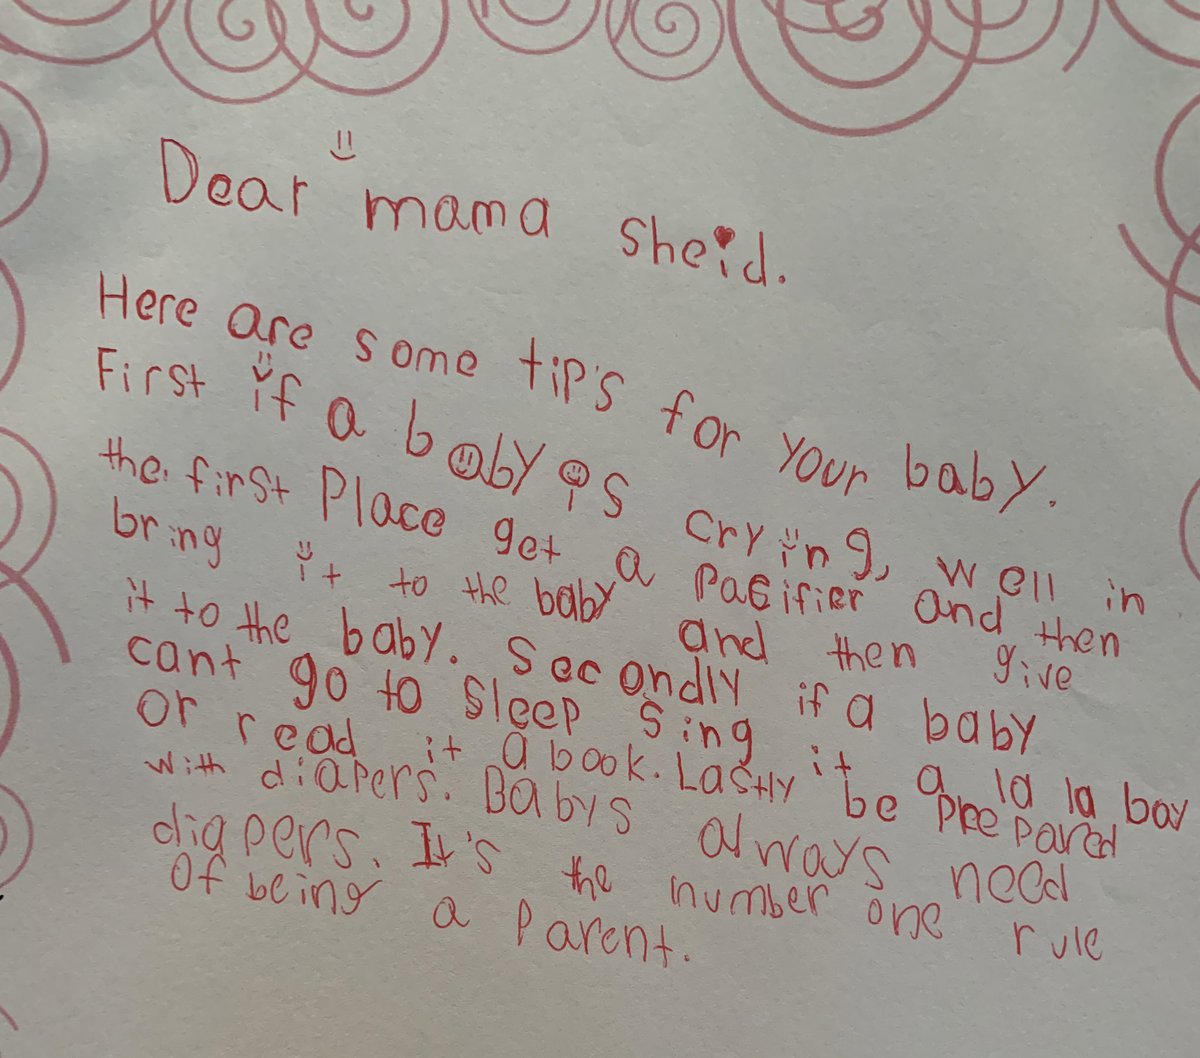 Dear mama sheid.
Here are some tip's for your baby.
First if a baby is crying, well in
the first Place get a Pacifier and then
bring it to the baby and then give
it to the baby. Secondly if a baby
cant go to sleep sing it a la la bay
or read it a book. Lastly be PrePared
with diapers. Babys always need
diapers. It's the number one rule
Of being a Parent.